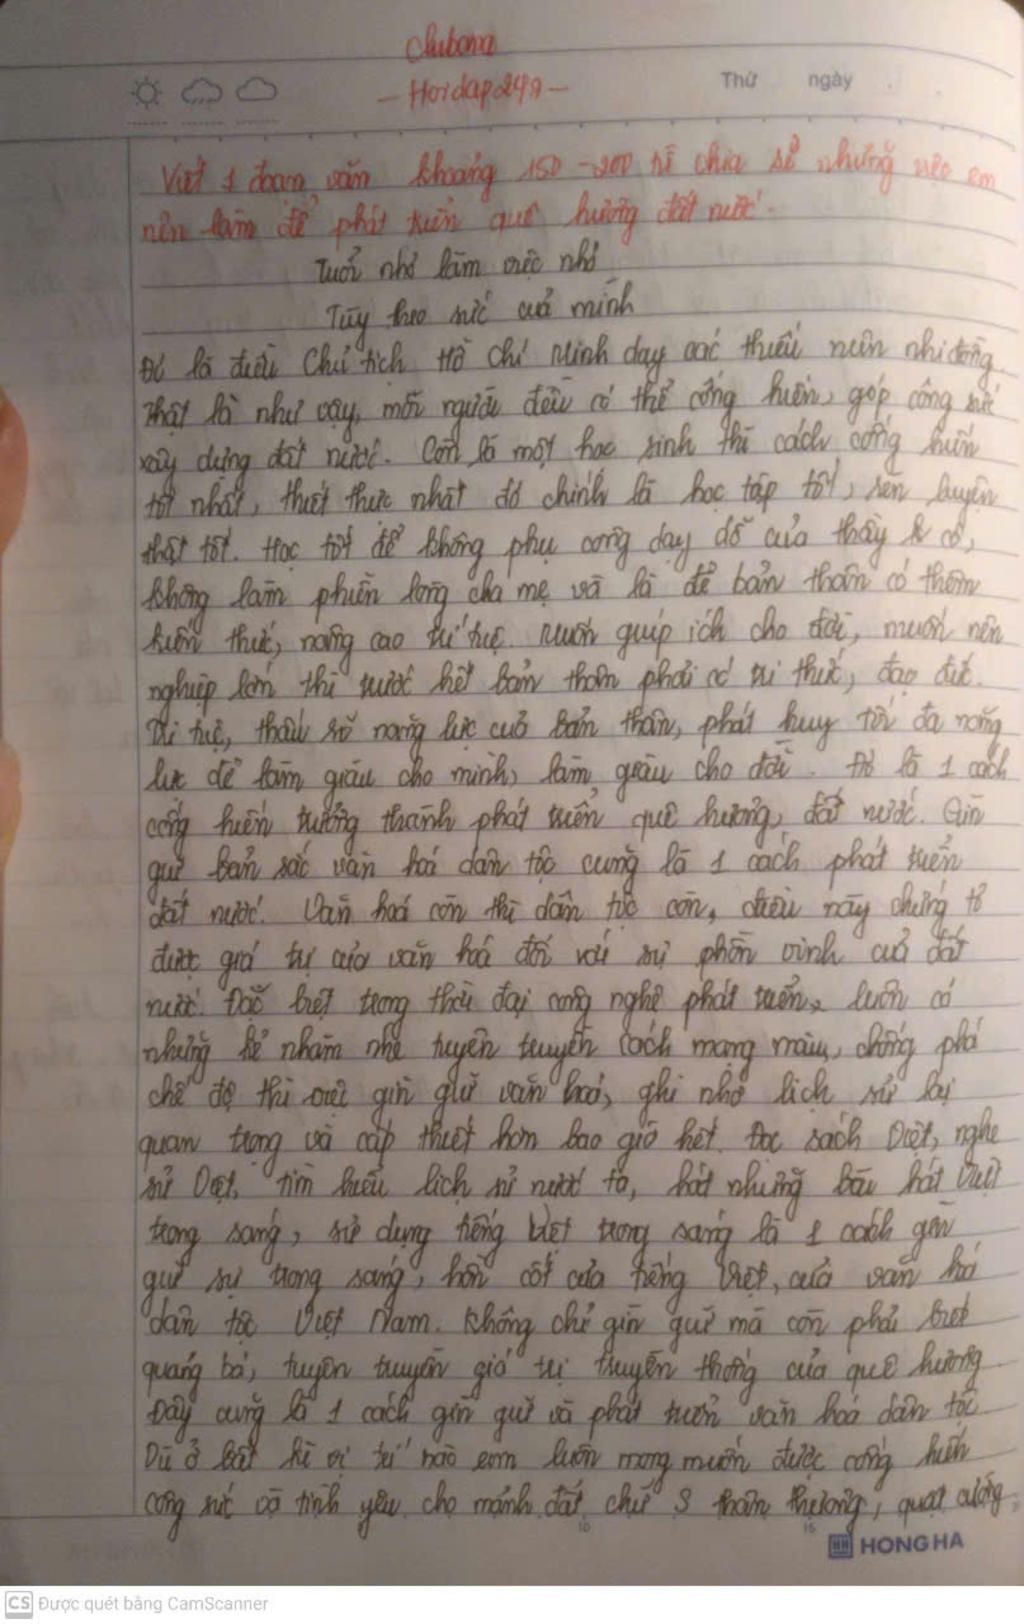 Thứ ngày
- Hoidap247 -
Viết 1 đoạn văn khoảng 150 - 200 chia sẻ những việc em
nên làm để phát triển quê hương đất nước.
Tuổi nhỏ làm việc nhỏ
Tùy theo sức của mình
Đó là điều Chủ tịch Hồ Chí Minh dạy các thiếu niên nhi đồng.
Thật là như vậy, mỗi người đều có thể cống hiến, góp công sức
xây dựng đất nước. Còn là một học sinh thì cách cống hiến
tốt nhất, thiết thực nhất đó chính là học tập tốt, rèn luyện
thật tốt. Học tốt để không phụ công dạy dỗ của thầy cô,
không làm phiền lòng cha mẹ và là để bản thân có thêm
kiến thức, nâng cao trí tuệ. Muốn giúp ích cho đời, muốn nên
nghiệp lớn thì trước hết bản thân phải có tri thức, đạo đức.
Trí tuệ, thấu rõ năng lực của bản thân, phát huy tối đa năng
lực để làm giàu cho mình, làm giàu cho đời. Đó là 1 cách
cống hiến trưởng thành phát triển quê hương, đất nước. Gìn
giữ bản sắc văn hoá dân tộc cũng là 1 cách phát triển
đất nước. Văn hoá còn thì dân tộc còn, điều này chứng tỏ
được giá trị của văn hoá đối với sự phồn vinh của đất
nước. Đặc biệt trong thời đại công nghệ phát triển, luôn có
những kẻ nhăm nhe tuyên truyền cách mạng màu, chống phá
chế độ thì việc gìn giữ văn hoá, ghi nhớ lịch sử lại
quan trọng và cấp thiết hơn bao giờ hết. Đọc sách Việt, nghe
sử Việt, tìm hiểu lịch sử nước ta, hát những bài hát Việt
trong sáng, sử dụng tiếng Việt trong sáng là 1 cách gìn
giữ sự trong sáng, hồn cốt của tiếng Việt, của văn hoá
dân tộc Việt Nam. Không chỉ gìn giữ mà còn phải biết
quảng bá, tuyên truyền giá trị truyền thống của quê hương
Đây cũng là 1 cách gìn giữ và phát triển văn hoá dân tộc
Dù ở bất kì vị trí nào em luôn mong muốn được cống hiến
công sức và tình yêu cho mảnh đất chữ S thân thương, quật cường
10 15
HH HONG HA
CS Được quét bằng CamScanner